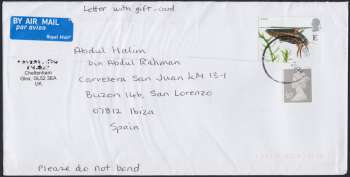 Letter with gift-card
BY AIR MAIL
par avion
Royal Mail
Cheltenham
Glos, GL52 5EA
UK
Abdul Halim
bin Abdul Rahman
Carretera San Juan kM 13-1
Buzon 146, San Lorenzo
07812 Ibiza
Spain
E
Please do not bend